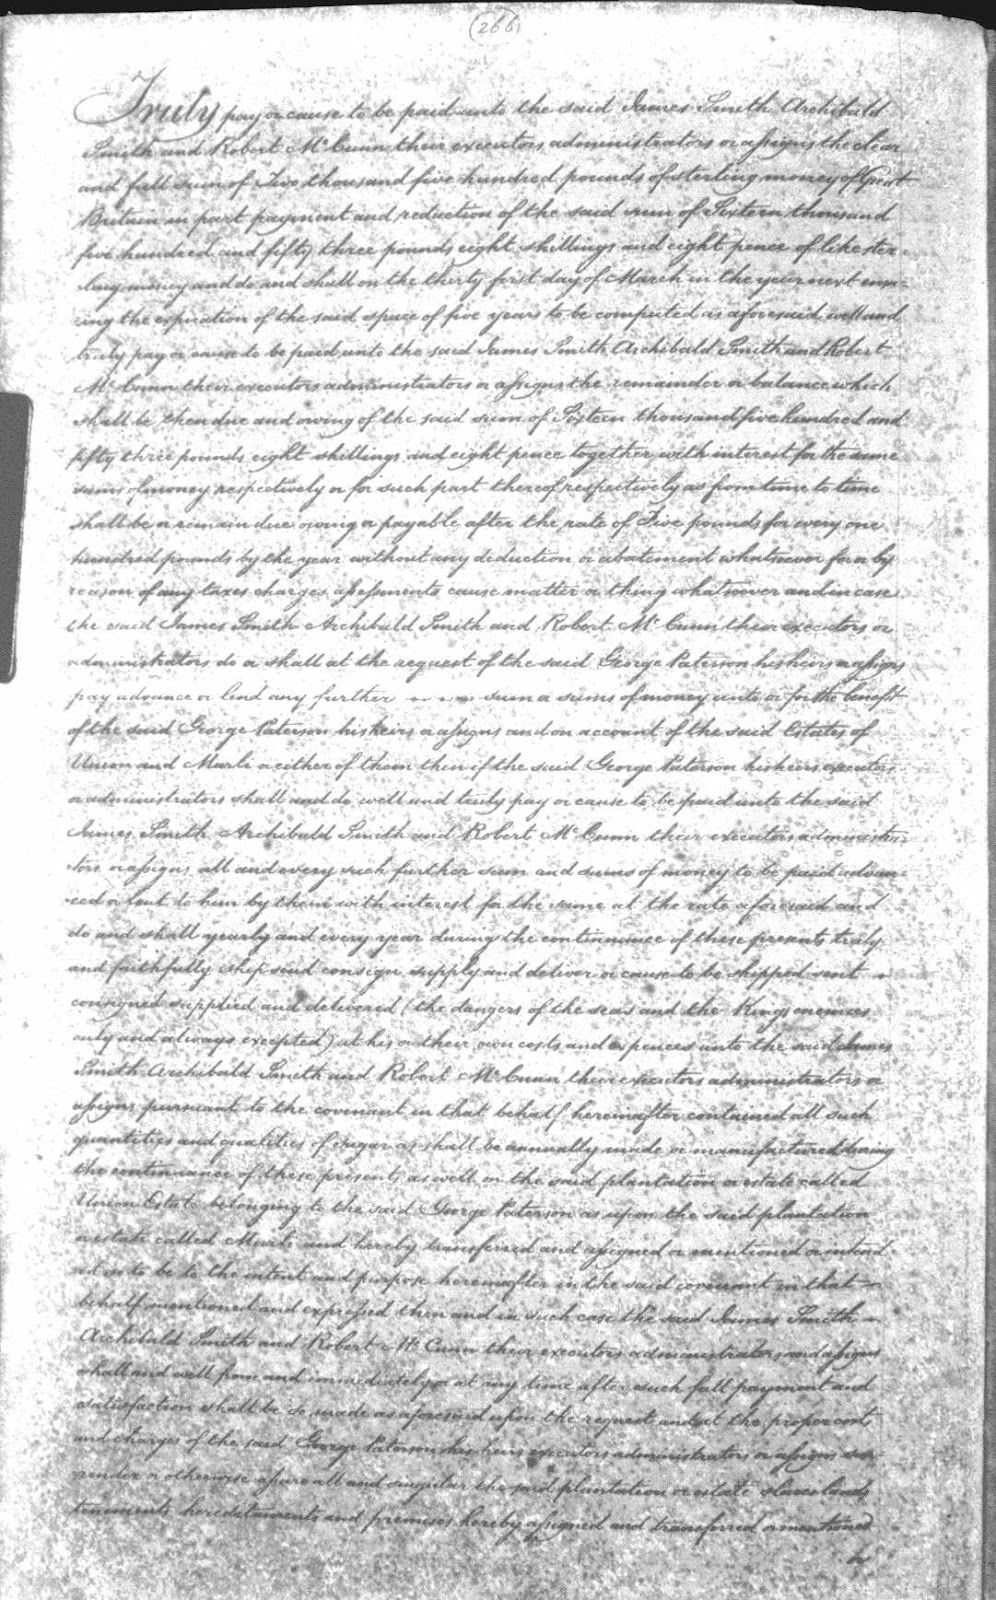 (266)
Truly pay or cause to be paid unto the said James Smith Archibald
Smith and Robert McCunn their executors administrators or assigns the clear
and full sum of Five thousand five hundred pounds of sterling money of Great
Britain in part payment and reduction of the said sum of Sixteen thousand
five hundred and fifty three pounds eight shillings and eight pence of like ster-
ling money and do and shall on the thirty first day of March in the year next ensu-
ing the expiration of the said space of five years to be computed as aforesaid well and
truly pay or cause to be paid unto the said James Smith Archibald Smith and Robert
McCunn their executors administrators or assigns the remainder or balance which
shall be then due and owing of the said sum of Sixteen thousand five hundred and
fifty three pounds eight shillings and eight pence together with interest for the same
sums of money respectively or for such part thereof respectively as from time to time
shall be or remain due owing or payable after the rate of Five pounds for every one
hundred pounds by the year without any deduction or abatement whatsoever for or by
reason of any taxes charges assessments cause matter or thing whatsoever and in case
the said James Smith Archibald Smith and Robert McCunn their executors or
administrators do or shall at the request of the said George Paterson his heirs or assigns
pay advance or lend any further sum or sums of money unto or for the benefit
of the said George Paterson his heirs or assigns and on account of the said Estates of
Union and Marli or either of them then if the said George Paterson his heirs executors
or administrators shall and do well and truly pay or cause to be paid unto the said
James Smith Archibald Smith and Robert McCunn their executors administra-
tors or assigns all and every such further sum and sums of money to be paid advan-
ced or lent to him by them with interest for the same at the rate aforesaid and
do and shall yearly and every year during the continuance of these presents truly
and faithfully ship send consign supply and deliver or cause to be shipped sent
consigned supplied and delivered (the dangers of the seas and the Kings enemies
only and always excepted) at his or their own costs and expences unto the said James
Smith Archibald Smith and Robert McCunn their executors administrators or
assigns pursuant to the covenant in that behalf hereinafter contained all such
quantities and qualities of sugar as shall be annually made or manufactured during
the continuance of these presents as well on the said plantation or estate called
Union Estate belonging to the said George Paterson as upon the said plantation
or estate called Marli and hereby transferred and assigned or mentioned or intend-
ed so to be to the intent and purpose hereinafter in the said covenant in that
behalf mentioned and expressed then and in such case the said James Smith
Archibald Smith and Robert McCunn their executors administrators and assigns
shall and will from and immediately or at any time after such full payment and
satisfaction shall be so made as aforesaid upon the request and at the proper cost
and charges of the said George Paterson his heirs executors administrators or assigns sur-
render or otherwise assure all and singular the said plantation or estate slaves lands
tenements hereditaments and premises hereby assigned and transferred or mentioned